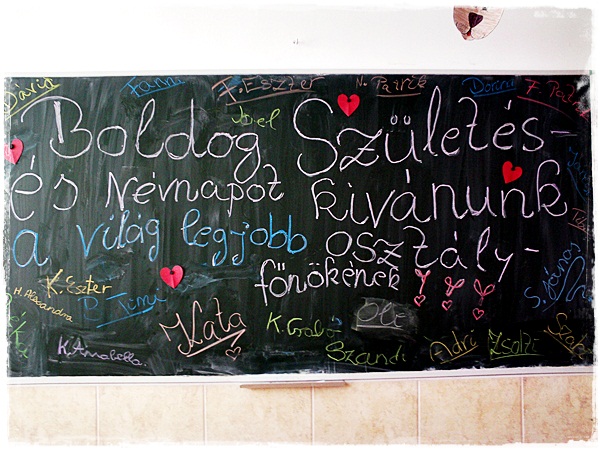 Dávid Fanni F. Eszter N. Patrik Dorina F. Petra
Adel
Boldog Születés-
és Névnapot kívánunk
a világ legjobb osztály-
főnökének
K. Eszter
H. Alexandra
P. Timi
Kata
K. Gabó
Oli
S. János
K. Annabella.
Szandi
Adri
Zsolti